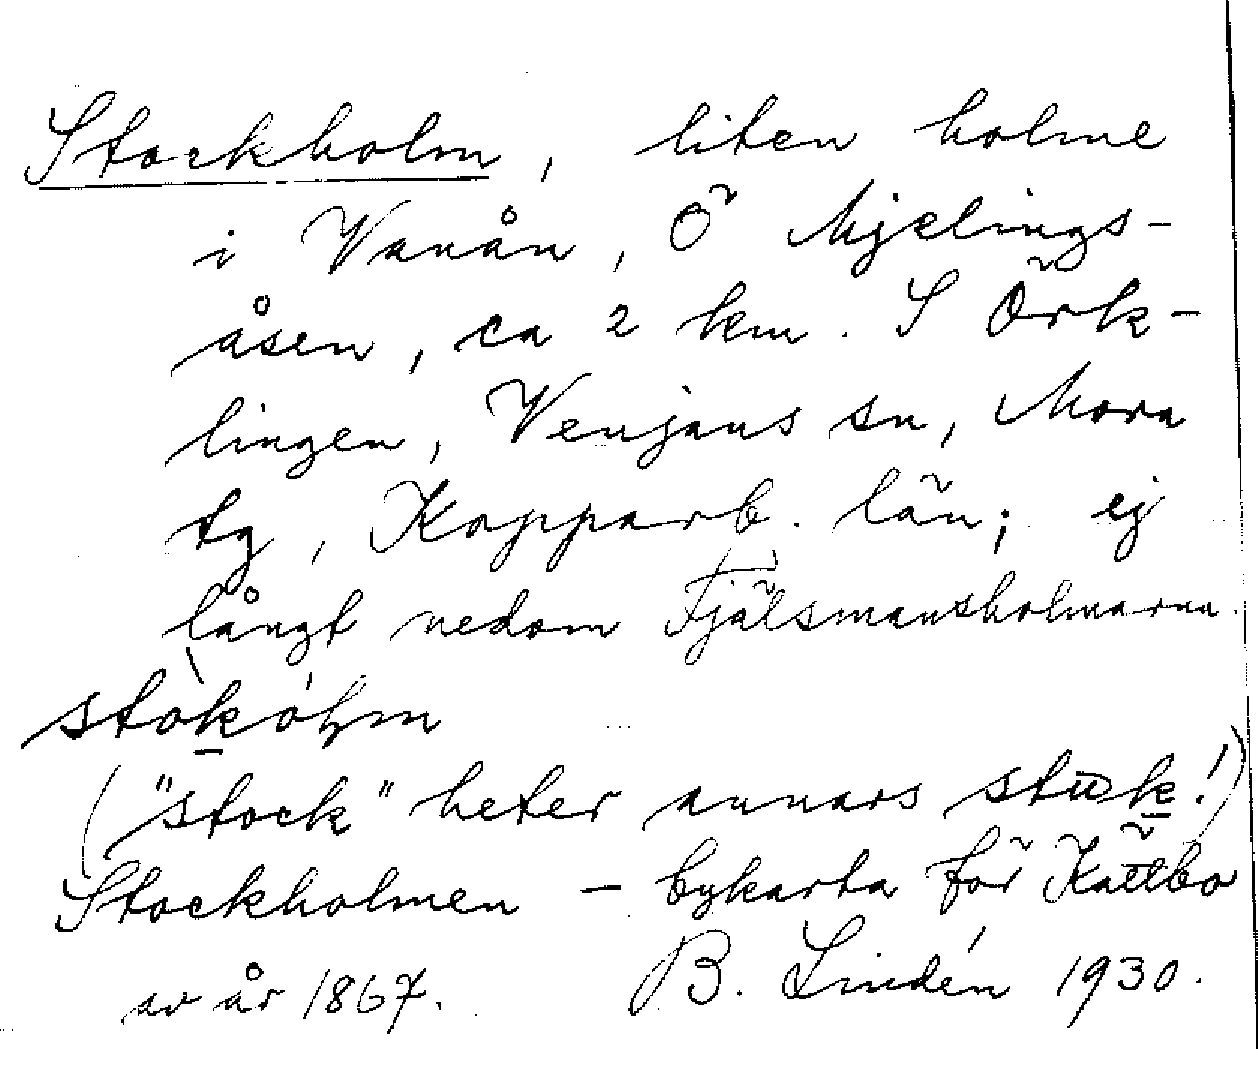 Stockholm, liten holme
i Vanån, Ö Mjelings-
åsen, ca 2 km. S Örk-
lingen, Venjans sn, Mora
tg, Kopparb. län; ej
långt nedom Fjälsmansholmarna.
stòkóḷm
("stock" heter annars stωk!)
Stockholmen – bykarta för Kättbo
av år 1867. B. Lindén 1930.